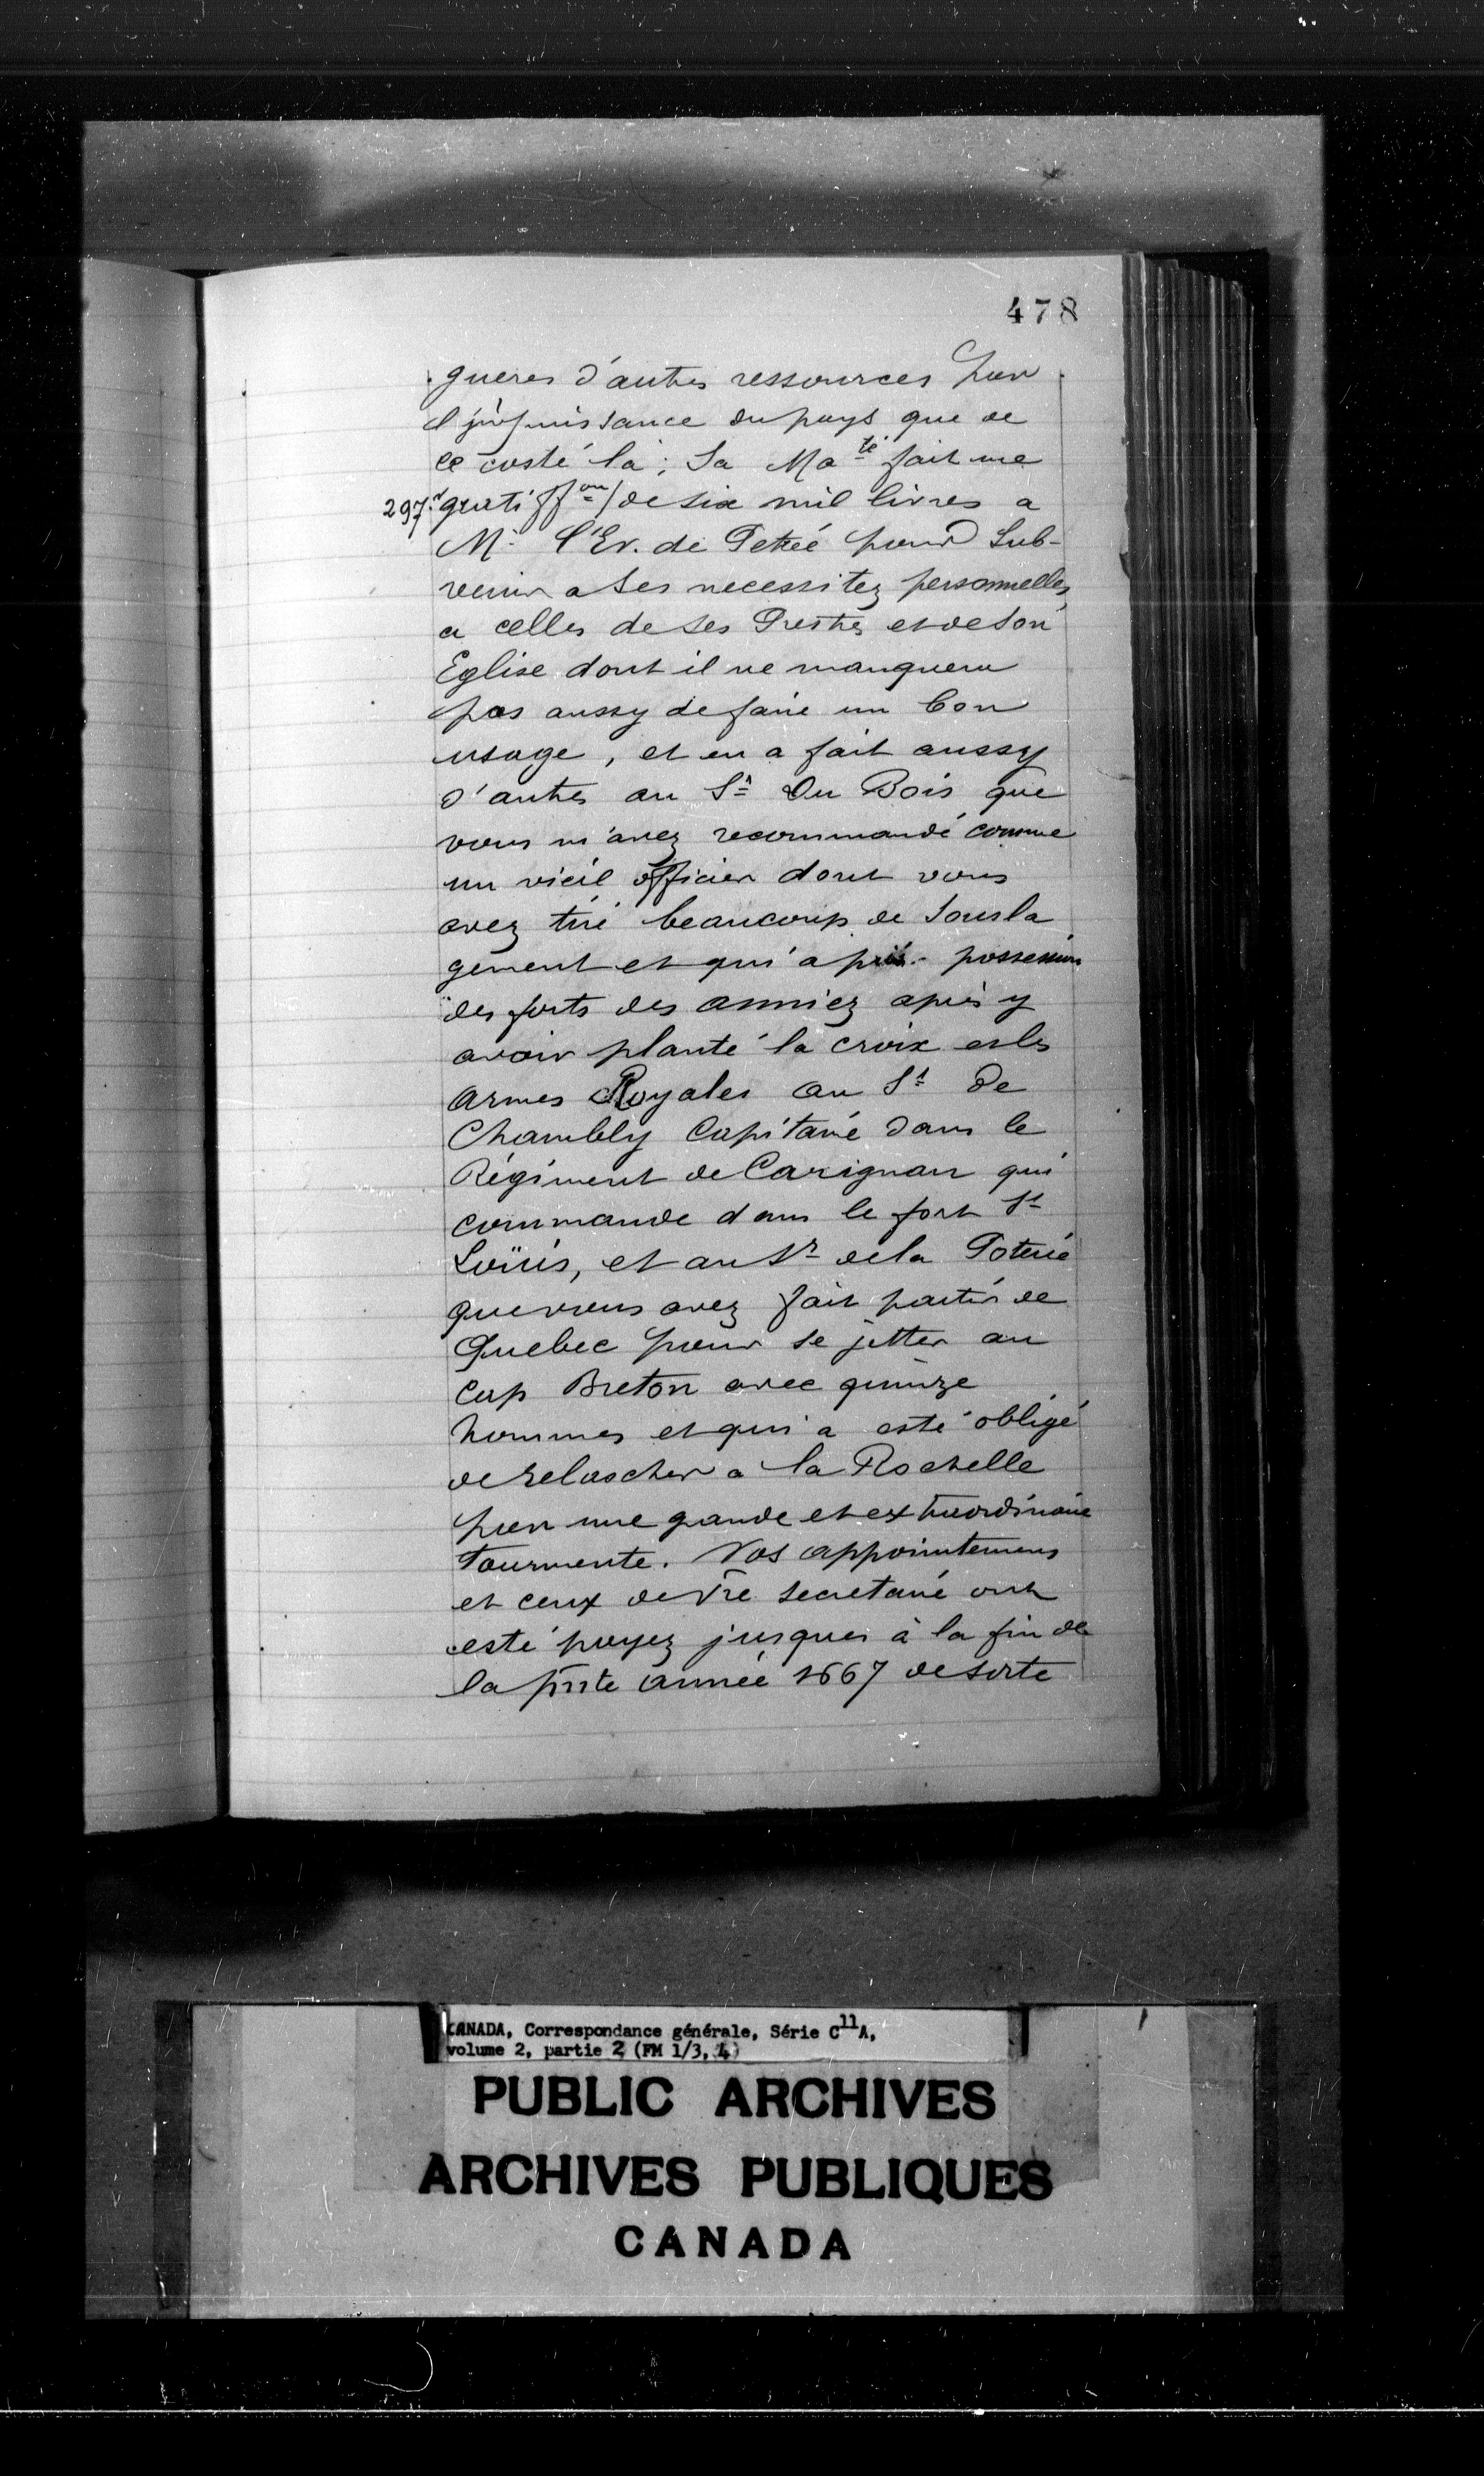 478
gueres d'autres ressources par
l'impuissance du pays que de
ce costé la; Sa Ma.té fait une
297.v gratiff.on / de six mil livres a
M.r l'Ev. de Petrée pour Sub-
venir a Ses necessitez personnelles,
a celles de Ses Prestres et de Son
Eglise dont il ne manquera
pas aussy de faire un bon
usage, et en a fait aussy
d'autres au S.r Du Bois que
vous m'avez recommandé comme
un vieil officier dont vous
avez tiré beaucoup de Soula
gement et qui a pris possession
des forts des anniez après y
avoir planté la croix et les
armes Royales au S.r De
Chambly Capitaine dans le
Régiment de Carignan qui
commande dans le fort S.t
Loüis, et au S.r de la Poterie
que vous avez fait partir de
Quebec pour se jetter au
Cap Breton avec quinze
hommes et qui a esté obligé
de relascher a la Rochelle
par une grande et extraordinaire
tourmente. Vos appointemens
et ceux de vr̃e secretaire ont
esté payez jusques à la fin de
la pr̃nte année 1667 de sorte
CANADA, Correspondance générale, Série C11A,
volume 2, partie 2 (FM 1/3, 4)
PUBLIC ARCHIVES
ARCHIVES PUBLIQUES
CANADA